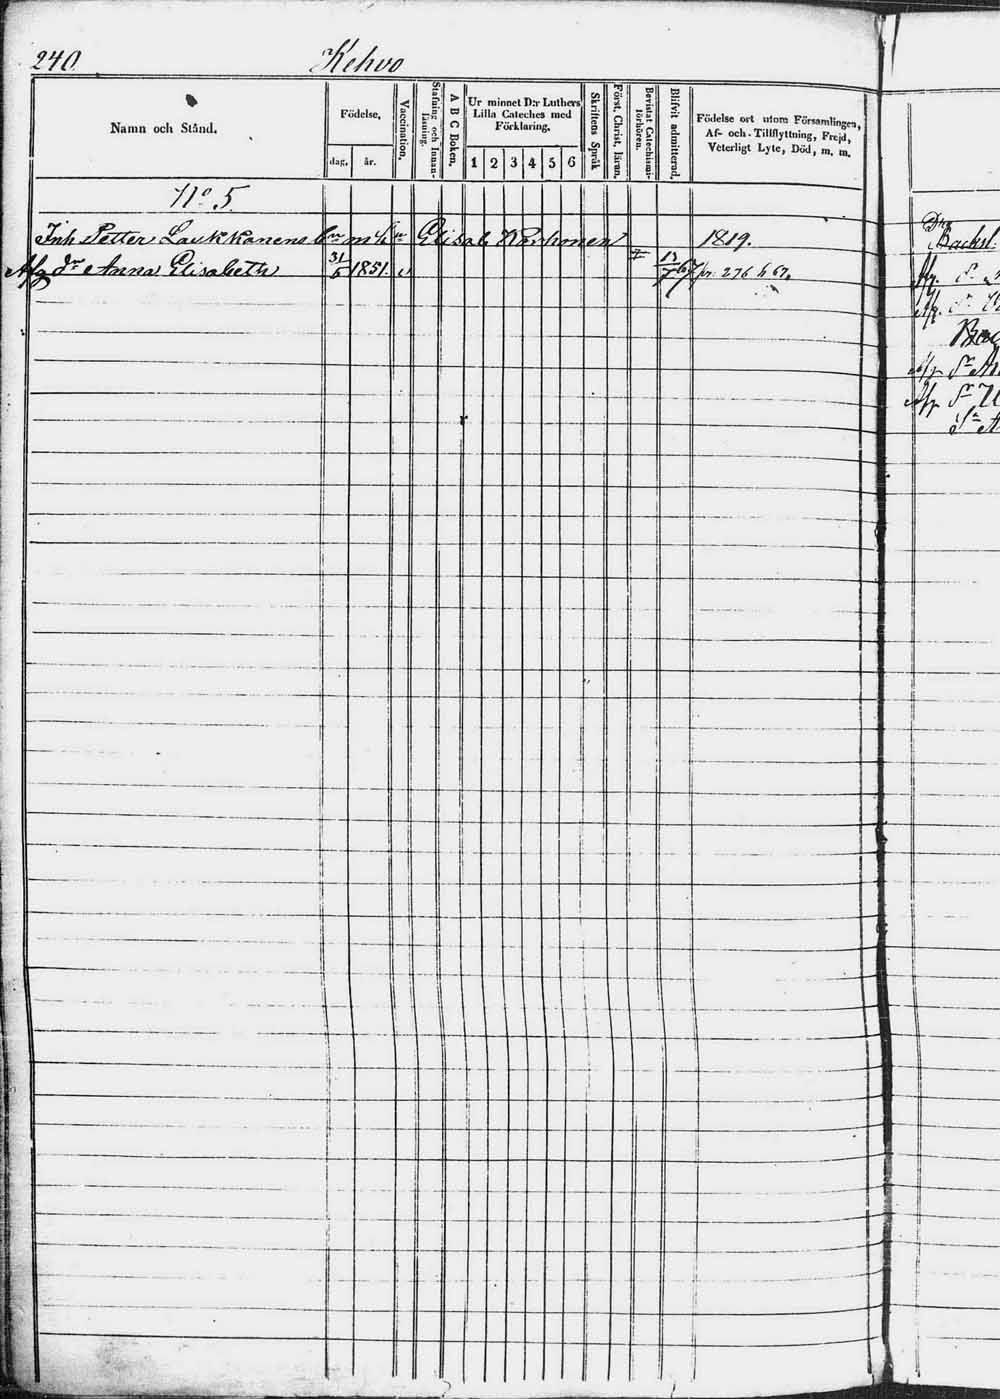 240.
Kehvo
Namn och Stånd.
Födelse.
dag.
år.
Vaccination.
Stafning och Innan-
läsning.
A B C Boken.
Ur minnet D:r Luthers
Lilla Cateches med
Förklaring.
1 2 3 4 5 6
Skriftens Språk
Först. Christ. läran.
Bevistat Catechismi-
förhören.
Blifvit admitterad.
Födelse ort utom Församlingen,
Af- och Tillflyttning, Frejd,
Veterligt Lyte, Död, m. m.
No 5.
Inh Petter Laukkanens Elisab 1819.
Afg dr Anna Elisabeth 31/5 1851. v 13/7 67 pr. 276 h 67.
Backst.